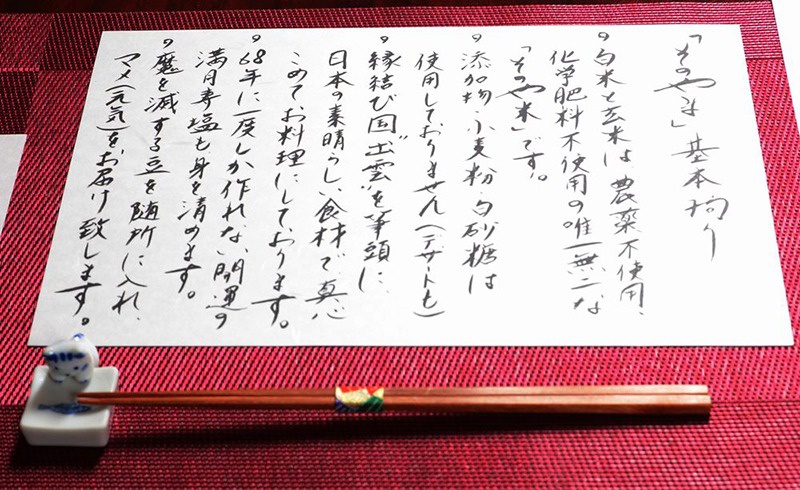 「そのやま」基本拘り
9 白米と玄米は農薬不使用、
化学肥料不使用の唯一無二な
「そのやま米」です。
9 添加物、小麦粉、白砂糖は
使用しておりません（デザートも）
9 縁結び国"出雲"を筆頭に、
日本の素晴らしい食材で真心
こめてお料理にしております。
9 68年に一度しか作れない開運の
満月寿塩も身を清めます。
9 魔を滅する豆を随所に入れ、
マメ（元気）をお届け致します。